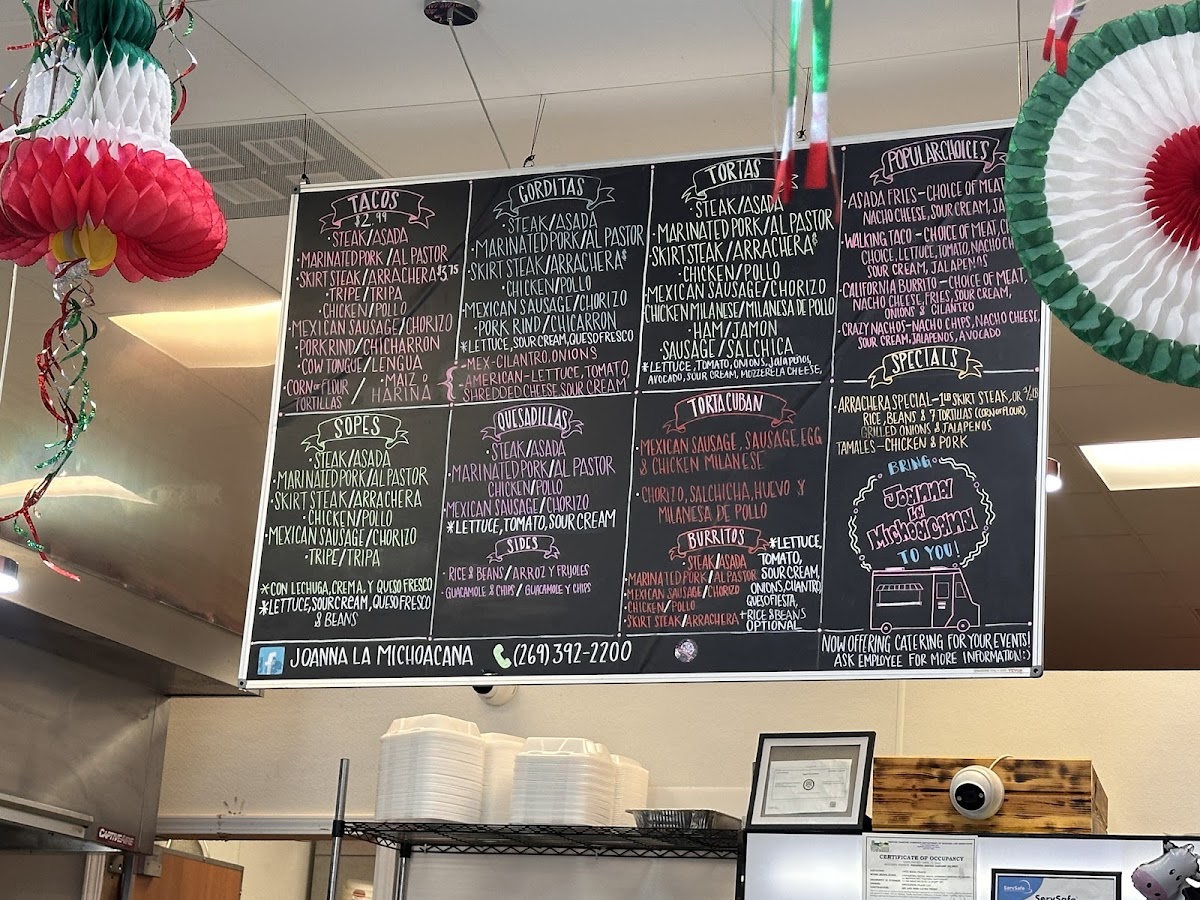 TACOS
$2.99
·STEAK/ASADA
·MARINATED PORK/AL PASTOR
·SKIRT STEAK/ARRACHERA $3.75
·TRIPE/TRIPA
·CHICKEN/POLLO
·MEXICAN SAUSAGE/CHORIZO
·PORK RIND/CHICHARRON
·COW TONGUE/LENGUA
·CORN OR FLOUR TORTILLAS / ·MAIZ O HARINA
GORDITAS
·STEAK/ASADA
·MARINATED PORK/AL PASTOR
·SKIRT STEAK/ARRACHERA$
·CHICKEN/POLLO
MEXICAN SAUSAGE/CHORIZO
·PORK RIND/CHICARRON
*LETTUCE, SOUR CREAM, QUESO FRESCO
·MEX-CILANTRO, ONIONS
·AMERICAN-LETTUCE, TOMATO,
SHREDDED CHEESE SOUR CREAM
TORTAS
·STEAK/ASADA
·MARINATED PORK/AL PASTOR
SKIRT STEAK/ARRACHERA$
·CHICKEN/POLLO
MEXICAN SAUSAGE/CHORIZO
CHICKEN MILANESE/MILANESA DE POLLO
·HAM/JAMON
·SAUSAGE/SALCHICA
*LETTUCE, TOMATO, ONIONS, JALAPEÑOS,
AVOCADO, SOUR CREAM, MOZZERELA CHEESE,
POPULAR CHOICES
·ASADA FRIES-CHOICE OF MEAT
NACHO CHEESE, SOUR CREAM,
·WALKING TACO-CHOICE OF MEAT,
CHOICE, LETTUCE, TOMATO, NACHO
SOUR CREAM, JALAPENOS
·CALIFORNIA BURRITO-CHOICE OF MEAT,
NACHO CHEESE, FRIES, SOUR CREAM,
ONIONS & CILANTRO
·CRAZY NACHOS-NACHO CHIPS, NACHO CHEESE,
SOUR CREAM, JALAPENOS, AVOCADO
SPECIALS
·ARRACHERA SPECIAL-1LB SKIRT STEAK, OR 1/2LB
RICE, BEANS & 7 TORTILLAS (CORN OR FLOUR),
GRILLED ONIONS & JALAPENOS
TAMALES-CHICKEN & PORK
SOPES
·STEAK/ASADA
·MARINATED PORK/AL PASTOR
·SKIRT STEAK/ARRACHERA
·CHICKEN/POLLO
·MEXICAN SAUSAGE/CHORIZO
·TRIPE/TRIPA
*CON LECHUGA, CREMA, Y QUESO FRESCO
*LETTUCE, SOUR CREAM, QUESO FRESCO
& BEANS
QUESADILLAS
·STEAK/ASADA
MARINATED PORK/AL PASTOR
CHICKEN/POLLO
MEXICAN SAUSAGE/CHORIZO
*LETTUCE, TOMATO, SOUR CREAM
SIDES
·RICE & BEANS/ARROZ Y FRIJOLES
·GUACAMOLE & CHIPS/GUACAMOLE Y CHIPS
TORTA CUBAN
·MEXICAN SAUSAGE, SAUSAGE, EGG
& CHICKEN MILANESE
·CHORIZO, SALCHICHA, HUEVO Y
MILANESA DE POLLO
BURRITOS
·STEAK/ASADA
·MARINATED PORK/AL PASTOR
·MEXICAN SAUSAGE/CHORIZO
·CHICKEN/POLLO
·SKIRT STEAK/ARRACHERA
*LETTUCE,
TOMATO,
SOUR CREAM,
ONIONS, CILANTRO,
QUESO FIESTA,
+RICE & BEANS
OPTIONAL
BRING
JOANNA
LA
MICHOACANA
TO YOU!
NOW OFFERING CATERING FOR YOUR EVENTS!
ASK EMPLOYEE FOR MORE INFORMATION!:)
f JOANNA LA MICHOACANA (269)392-2200
CAPTIVEAIRE
CERTIFICATE OF OCCUPANCY
ServSafe
ServSafe